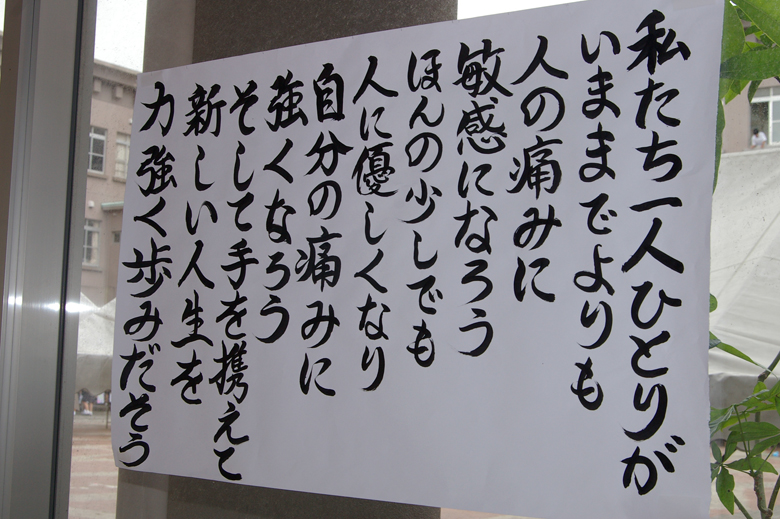 私たち一人ひとりが
いままでよりも
人の痛みに
敏感になろう
ほんの少しでも
人に優しくなり
自分の痛みに
強くなろう
そして手を携えて
新しい人生を
力強く歩みだそう